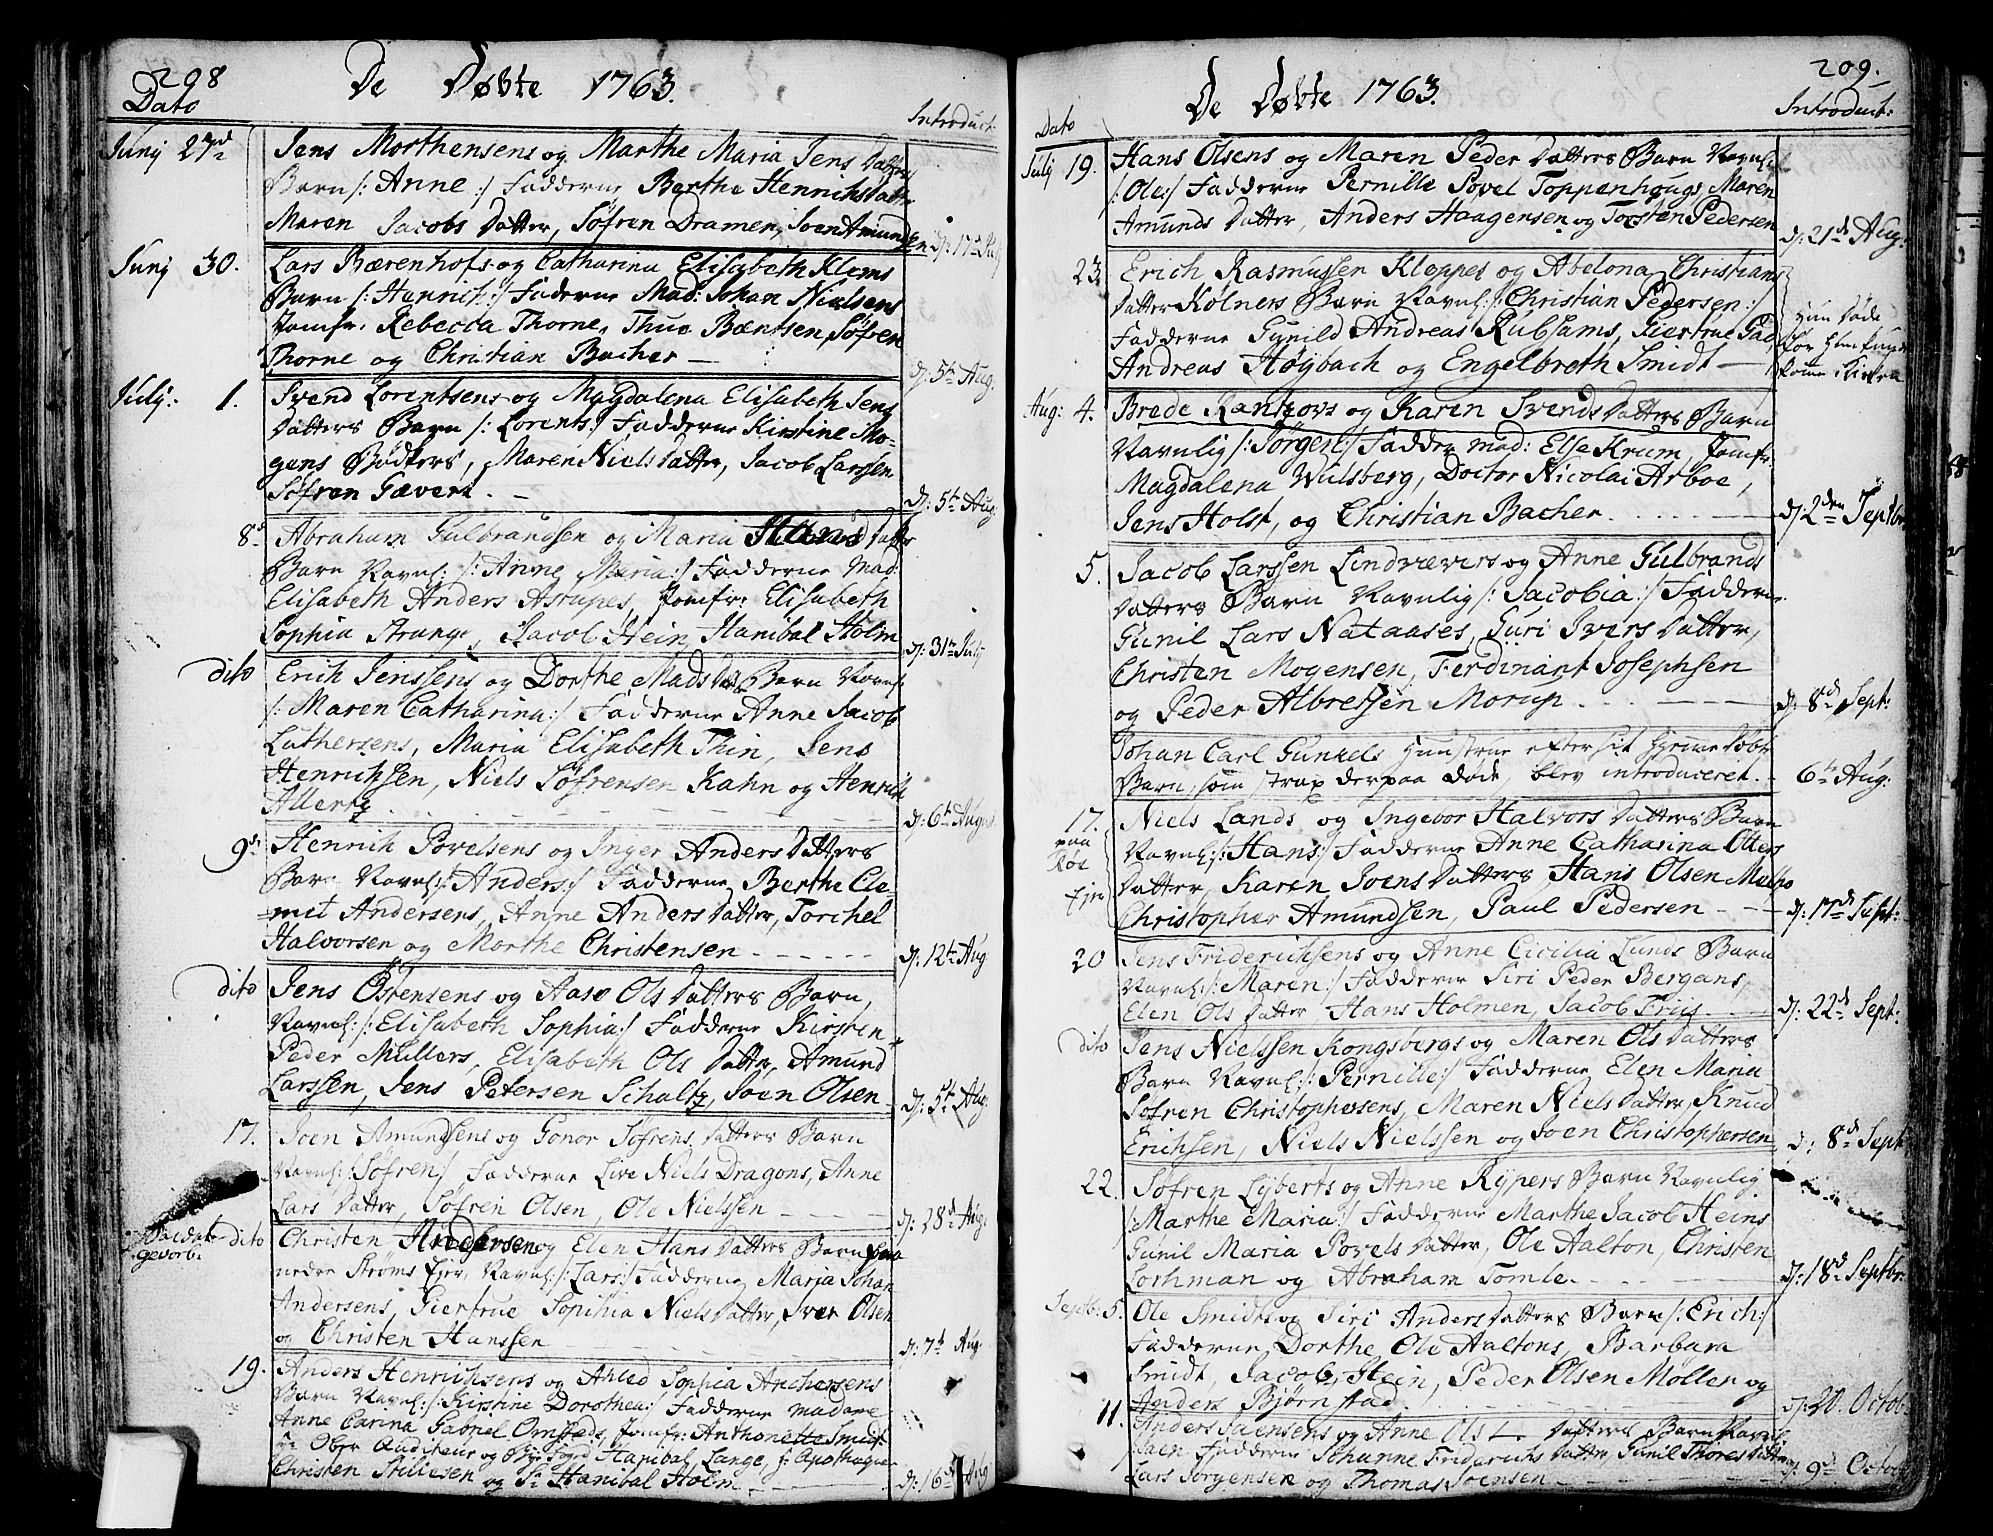 208
De Døbte 1763.
Dato
Introduct:
Junj 27d
Jens Morthensens og Marthe Maria Jens Datters
Barn /: Anne :/ Fadderne Berthe Henrichs Datter
Maren Jacobs Datter, Søfren Dramen, Joen Amundsen
d: 17d July
Junj 30.
Lars Bærenhofs og Catharina Elisabeth Klems
Barn /: Henrich :/ Fadderne Mad: Johan Nielsens
Jomfr. Rebecca Thorne, Thue Bentsen, Søfren
Thorne og Christian Bacher —
d: 5t Aug:
Julj: 1.
Svend Lorentsens og Magdalena Elisabeth Jens
Datters Barn /: Lorents :/ Fadderne Kirstine Mo-
gens Bødkers, Maren Niels Datter, Jacob Larssen
Søfren Gævert. —
d: 5t Aug:
8d
Abraham Gulbrandsen og Maria Hans Datter
Barn Navnl: /: Anne Maria :/ Fadderne Mad:
Elisabeth Anders Astrupes, Jomfr: Elisabeth
Sophia Strange, Jacob Hein, Hanibal Holm
d: 31te July
dito
Erich Jenssens og Dorthe Mads Dat Barn Navnl:
/: Maren Catharina :/ Fadderne Anne Jacob
Luthersens, Maria Elisabeth Thin, Jens
Henrichsen, Niels Søfrensen Kahn og Henrich
Allertz.
d: 6t August
9de
Henrich Povelsens og Inger Anders Datters
Barn Navnl: /: Anders :/ Fadderne Berthe Cle-
met Andersens, Anne Anders Datter, Torchel
Halvorsen og Morthe Christensen
d: 12te Aug
dito
Jens Østensens og Aase Ols Datters Barn,
Navnl: /: Elisabeth Sophia :/ Fadderne Kirsten
Peder Müllers, Elisabeth Ols Datter, Amund
Larssen, Jens Petersen Schultz, Joen Olsen
d: 5t Aug:
17.
Joen Amundsens og Gonor Søfrens Datters Barn
Navnl: /: Søfren :/ Fadderne Live Niels Dragons, Anne
Lars Datter, Søfren Olsen, Ole Nielssen
d: 28d Aug:
gevorb: dito
Christen Andersen og Elen Hans Datters Barn paa
nedre Strøms Eier, Navnl: /: Lars :/ Fadderne Maria Johan
Andersens, Giertrue Sophia Niels Datter, Iver Olsen
og Christen Hanssen
d: 7t Aug:
19.
Anders Henrichsens og Ahled Sophia Anchersens
Barn Navnl: /: Kirstine Dorothea :/ Fadderne Madame
Anne Carina Gabriel Ornsteds, Jomfr: Anthonette Smidt
Sr Ober Auditeur og Bye Foged Hanibal Lange, Apothequer
Christen Stillesen og Sr Hanibal Holm
d: 16d Aug
209.
De Døbte 1763.
Dato
Introduct:
Julj 19.
Hans Olsens og Maren Peder Datters Barn Navnl:
/: Ole :/ Fadderne Pernille Povel Toppenhougs, Maren
Amunds Datter, Anders Haagensen og Torsten Pedersen
d: 21de Aug:
23.
Erich Rasmussen Kleppes og Abelona Christians
Datter Kølners Barn Navnl: /: Christian Pedersen :/
Fadderne Gunild Andreas Rubsams, Giertrue
Andreas Høybach og Engelbreth Smidt —
Hun døde
før Hun kunde
komme i Kirken
Aug: 4.
Brede Rantzovs og Karen Svends Datters Barn
Navnlig /: Jørgen :/ Fadder mad: Else Krum, Jomfr.
Magdalena Wulsberg, Doctor Nicolai Arboe,
Jens Holst, og Christian Bacher.
d: 2den Septbr
5.
Jacob Larssen Lindværers og Anne Gulbrands
Datters Barn Navnlig /: Jacobia :/ Fadderne
Gunil Lars Nataases, Guri Ivers Datter,
Christen Mogensen, Ferdinant Josephsen
og Peder Albretsen Morup.
d: 8d Sept:
Johan Carl Gunkels Hunstrue efter sit Hieme døbte
Barn, som strax derpaa døde, blev introduceret.
6te Aug:
17.
paa
Røe
Ejer
Niels Lands og Ingebor Halvors Datters Barn
Navnl: /: Hans :/ Fadderne Anne Catharina Otters
Datter, Karen Joens Datters, Hans Olsen Moeho
Christopher Amundsen, Paul Pedersen
d: 17d Sept:
20
Jens Friderichsens og Anne Cicilia Lunds Barn
Navnl: /: Maren :/ Fadderne Siri Peder Bergans,
Elen Ols Datter Hans Holmen, Jacob Friis.
d: 22d Sept:
dito
Jens Nielssen Kongsbergs og Maren Ols Datters
Barn Navnl: /: Pernille :/ Fadderne Elen Maria
Søfren Christophersens, Maren Niels Datter, Knud
Erichsen, Niels Nielssen og Joen Christophersen
d: 8d Sept
22.
Søfren Lyberts og Anne Rypers Barn Navnlig
/: Marthe Maria :/ Fadderne Marthe Jacob Heins
Gunil Maria Povels Datter, Ole Aalton, Christen
Lochman og Abraham Tomle.
d: 18d Septbr:
Septb: 5.
Ole Smides og Siri Anders Datters Barn /: Erich :/
Fadderne Dorthe Ole Aaltons, Barbara
Smidt, Jacob Hein, Peder Olsen Møller og
Anders Bjørnstad.
d: 20. Octob.
11.
Anders Joensens og Anne Ols Datters Barn Navnl:
/: Joen Fadderne Johanne Friderichs Datter, Gunil Thores Datter
Lars Jørgensen og Thomas Joensen
d: 9d Octob